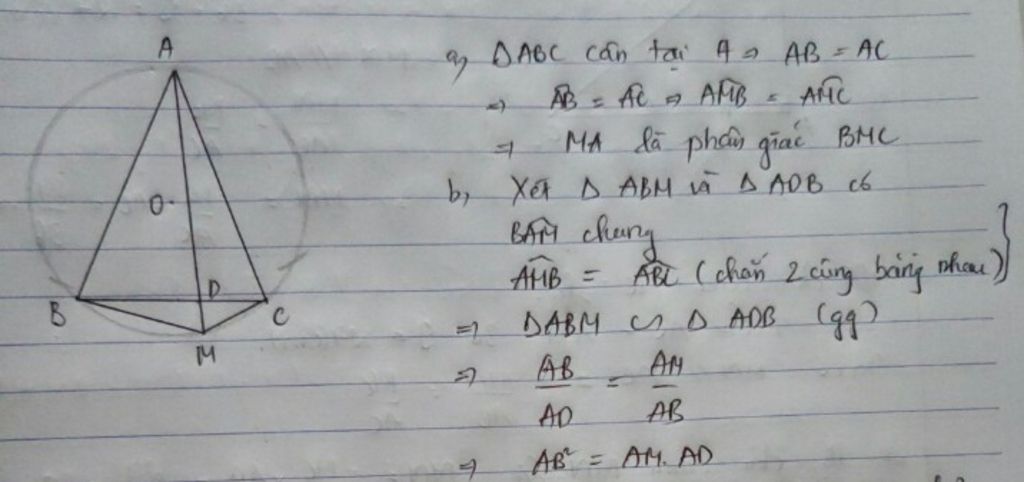 A
O
B
D
C
M
a, ΔABC cân tại A ⇒ AB = AC
⇒ A͡B = A͡C ⇒ AM̂B = AM̂C
⇒ MA là phân giác BMC
b, Xét Δ ABM và Δ ADB có
BÂM chung
AM̂B = AB̂C (chắn 2 cung bằng nhau)}
⇒ ΔABM ∽ Δ ADB (gg)
⇒ AB/AD = AM/AB
⇒ AB² = AM. AD